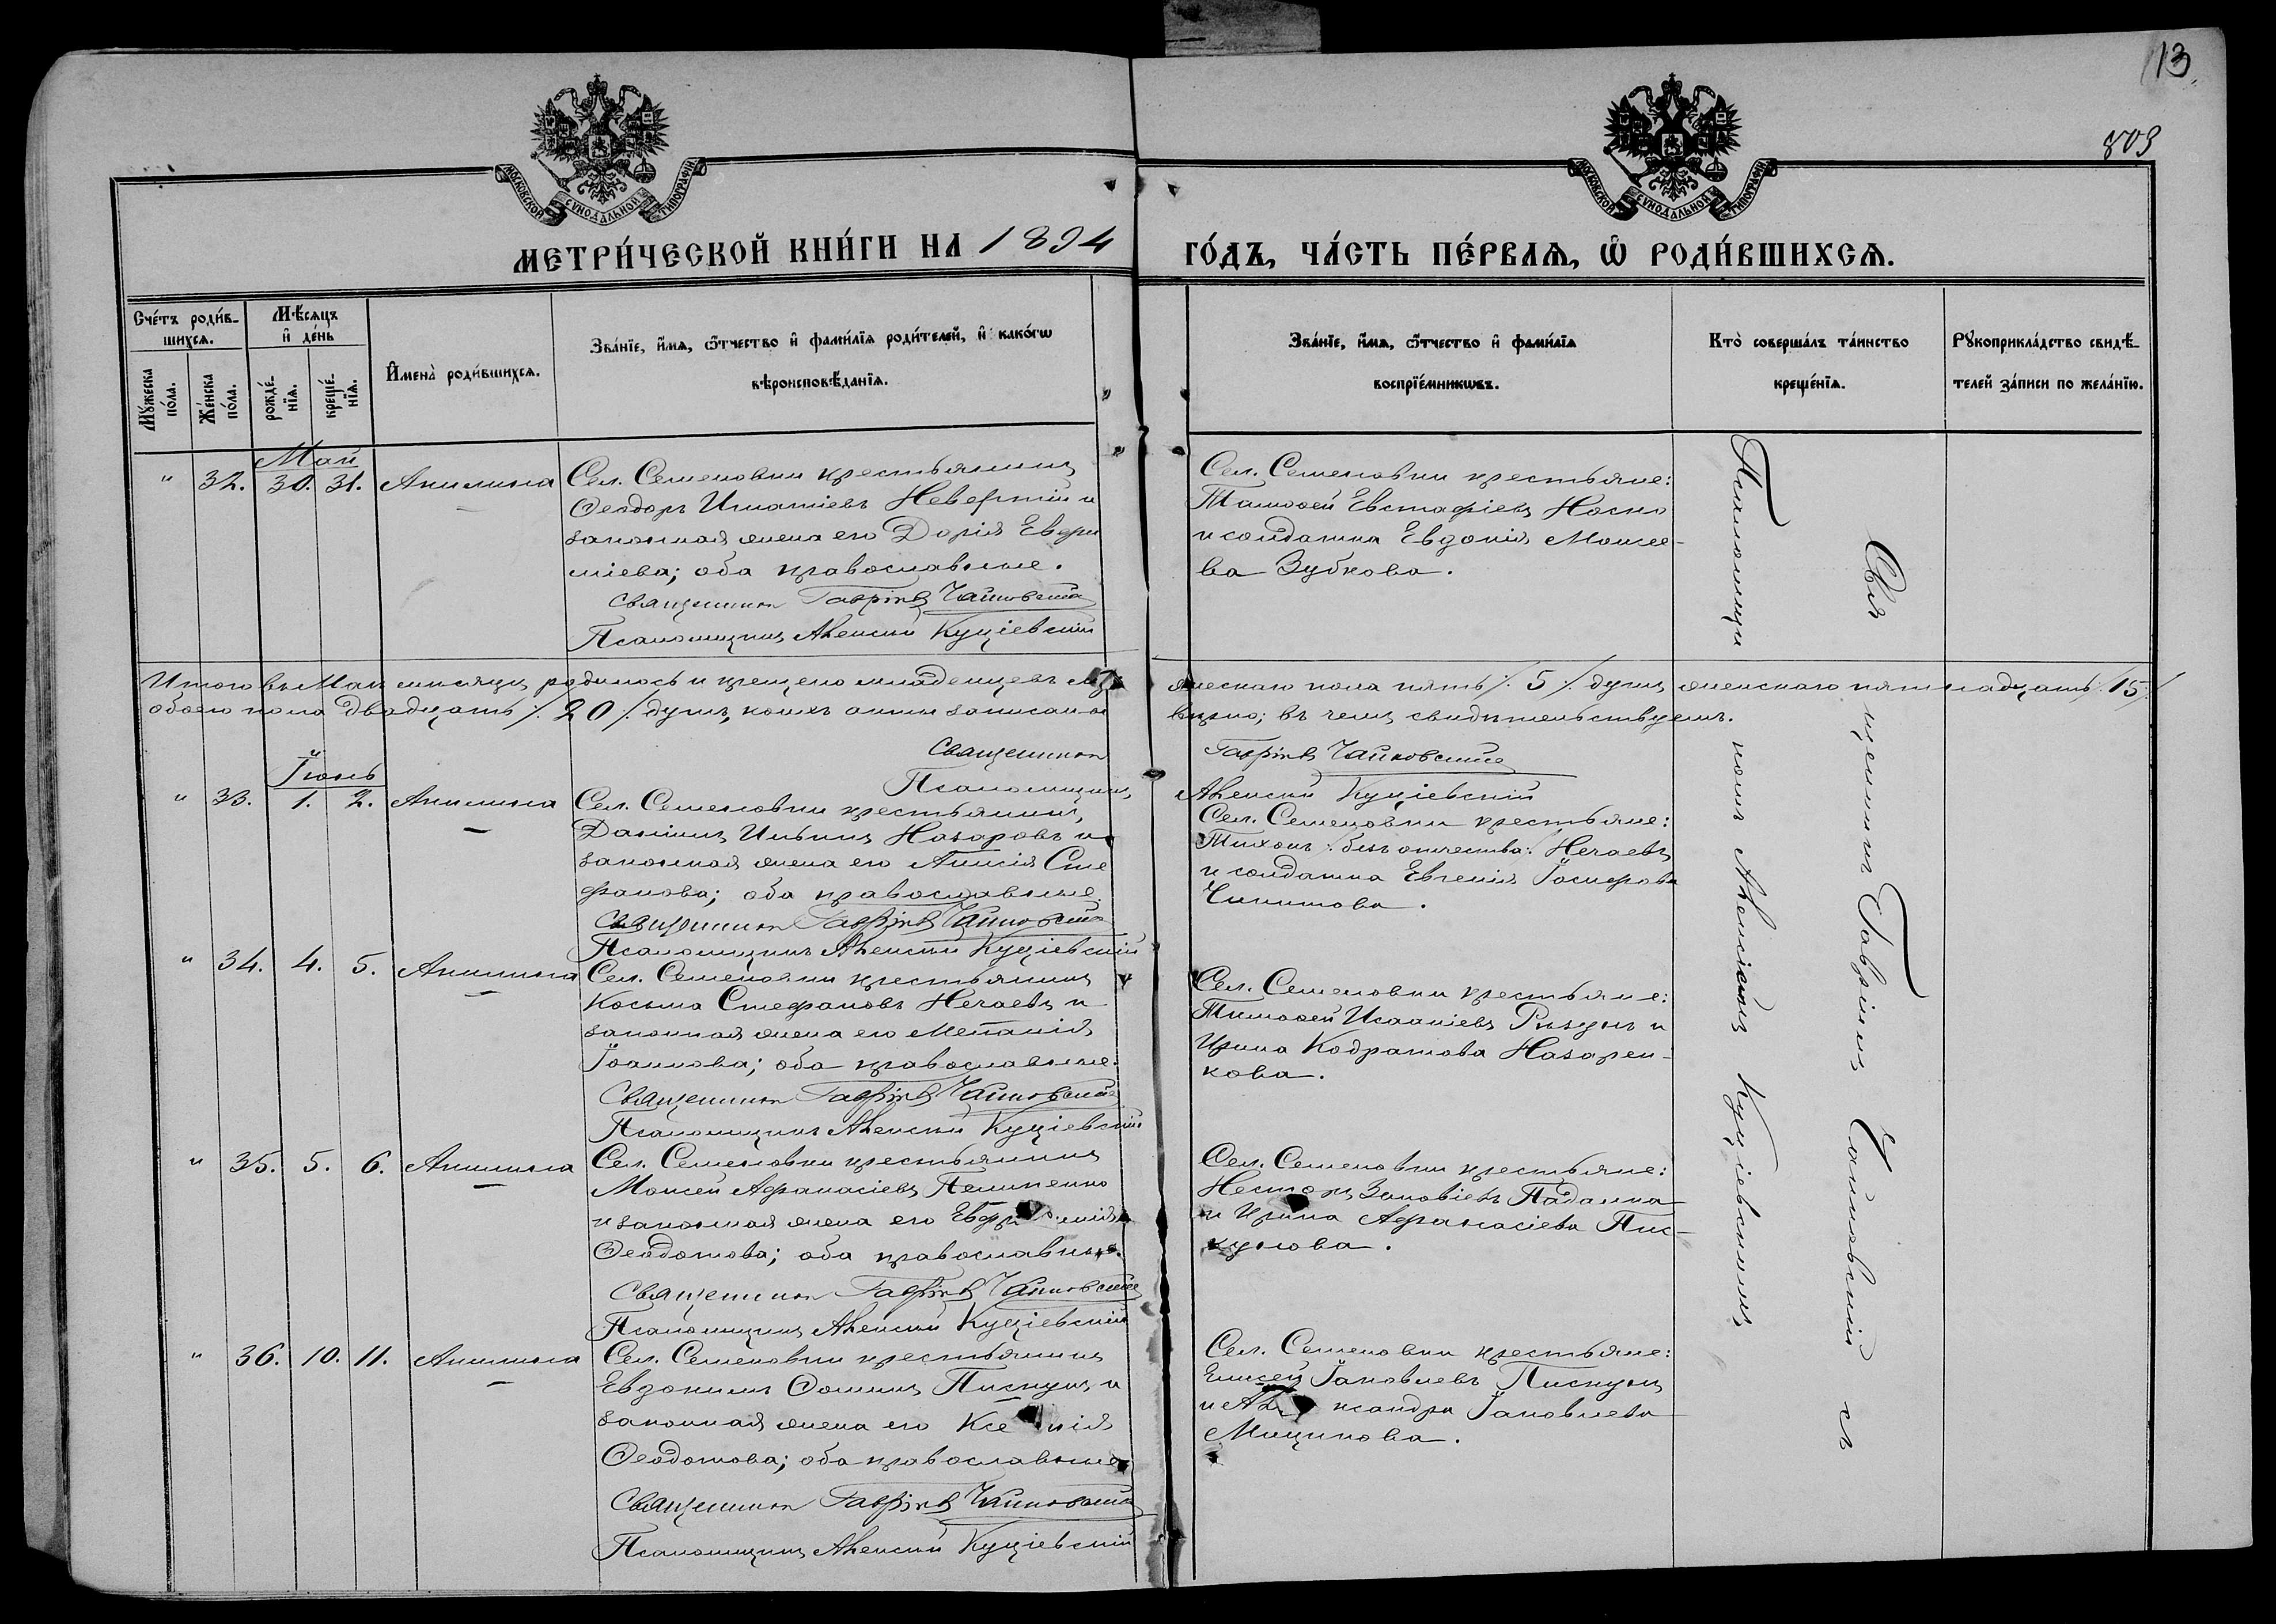 13
809
МОСКОВСКОЙ СѴНОДАЛЬНОЙ ТИПОГРАФІИ
МОСКОВСКОЙ СѴНОДАЛЬНОЙ ТИПОГРАФІИ
МЕТРИ́ЧЕСКОЙ КНИ́ГИ НА 1894 ГО́ДЪ, ЧА́СТЬ ПЕ́РВАѦ, Ѡ҆ РОДИ́ВШИХСѦ.
Сче́тъ роди́в-
шихсѧ.
Мѣ́сѧцъ
и҆ де́нь
Мꙋ́жеска
по́ла.
Же́нска
по́ла.
рожде́-
нїѧ.
креще́-
нїѧ.
И҆мена̀ роди́вшихсѧ.
Зва́нїе, и҆́мѧ, ѻ҆́тчество и҆ фами́лїѧ роди́телей, и҆ како́гѡ
вѣроисповѣ́данїѧ.
Зва́нїе, и҆́мѧ, ѻ҆́тчество и҆ фами́лїѧ
воспрїе́мникѡвъ.
Кто̀ соверша́лъ та́инство
креще́нїѧ.
Рꙋкоприкла́дство свидѣ́-
телей за́писи по жела́нїю.
Май
" 32. 30. 31. Акилина
Сел. Семеновки крестьянинъ
Ѳеодоръ Игнатіевъ и
законная жена его Дарія Евфи
міева; оба православные.
Священникъ Гавріилъ Чайковскій
Псаломщикъ Алексій Куціевскій
Сел. Семеновки крестьяне:
Тимоѳей Евстафіевъ Носко
и солдатка Евдокія Моисее-
ва Зубкова.
Итого въ Маѣ мѣсяцѣ родилось и крещено младенцевъ мужескаго пола пять /. 5 /. душъ, женскаго пятнадцать /. 15 /.
обоего пола двадцать /. 20 /. душъ, коихъ акты записаны вѣрно; въ чемъ свидѣтельствуемъ.
Священникъ Гавріилъ Чайковскій
Псаломщикъ Алексій Куціевскій
Іюнь
" 33. 1. 2. Акилина
Сел. Семеновки крестьянинъ,
Даніилъ Ильинъ Назаровъ и
законная жена его Анисія Сте
фанова; оба православные.
Священникъ Гавріилъ Чайковскій
Псаломщикъ Алексій Куціевскій
Сел. Семеновки крестьяне:
Тихонъ /: безъ отчества :/ Нечаевъ
и солдатка Евгенія Іосифова
" 34. 4. 5. Акилина
Сел. Семеновки крестьянинъ
Косьма Стефановъ Нечаевъ и
законная жена его Меланія
Іоаннова; оба православные.
Священникъ Гавріилъ Чайковскій
Псаломщикъ Алексій Куціевскій
Сел. Семеновки крестьяне:
Тимоѳей Исаакіевъ и
Ирина Кодратова Назарен-
кова.
" 35. 5. 6. Акилина
Сел. Семеновки крестьянинъ
Моисей Аѳанасіевъ Пилипенко
и законная жена его Евфросинія
Ѳеодотова; оба православные.
Священникъ Гавріилъ Чайковскій
Псаломщикъ Алексій Куціевскій
Сел. Семеновки крестьяне:
Несторъ Зиновіевъ Падалка
и Ирина Аѳанасіева Пис-
кунова.
" 36. 10. 11. Акилина
Сел. Семеновки крестьянинъ
Евдокимъ Ѳоминъ Пискунъ и
законная жена его Ксенія
Ѳеодотова; оба православные
Священникъ Гавріилъ Чайковскій
Псаломщикъ Алексій Куціевскій
Сел. Семеновки крестьяне:
Елисей Іаковлевъ Пискунъ
и Александра Іаковлева
Мищикова.
Священникъ Гавріилъ Чайковскій съ
Псаломщикомъ Алексіемъ Куціевскимъ